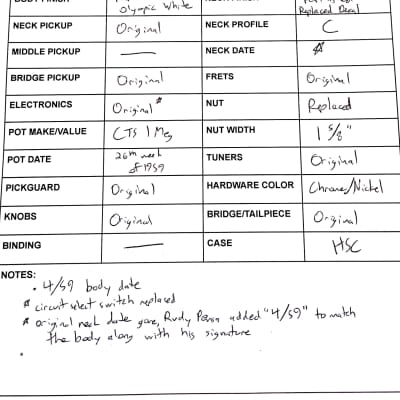 Olympic White Replaced Decal
NECK PICKUP Original NECK PROFILE C
MIDDLE PICKUP — NECK DATE *
BRIDGE PICKUP Original FRETS Original
ELECTRONICS Original* NUT Replaced
POT MAKE/VALUE CTS 1 Meg NUT WIDTH 1 5/8"
POT DATE 26th week of 1959 TUNERS Original
PICKGUARD Original HARDWARE COLOR Chrome/Nickel
KNOBS Original BRIDGE/TAILPIECE Original
BINDING — CASE HSC
NOTES:
• 4/59 body date
* circuit select switch replaced
* original neck date gone, Rudy added "4/59" to match
the body along with his signature
•